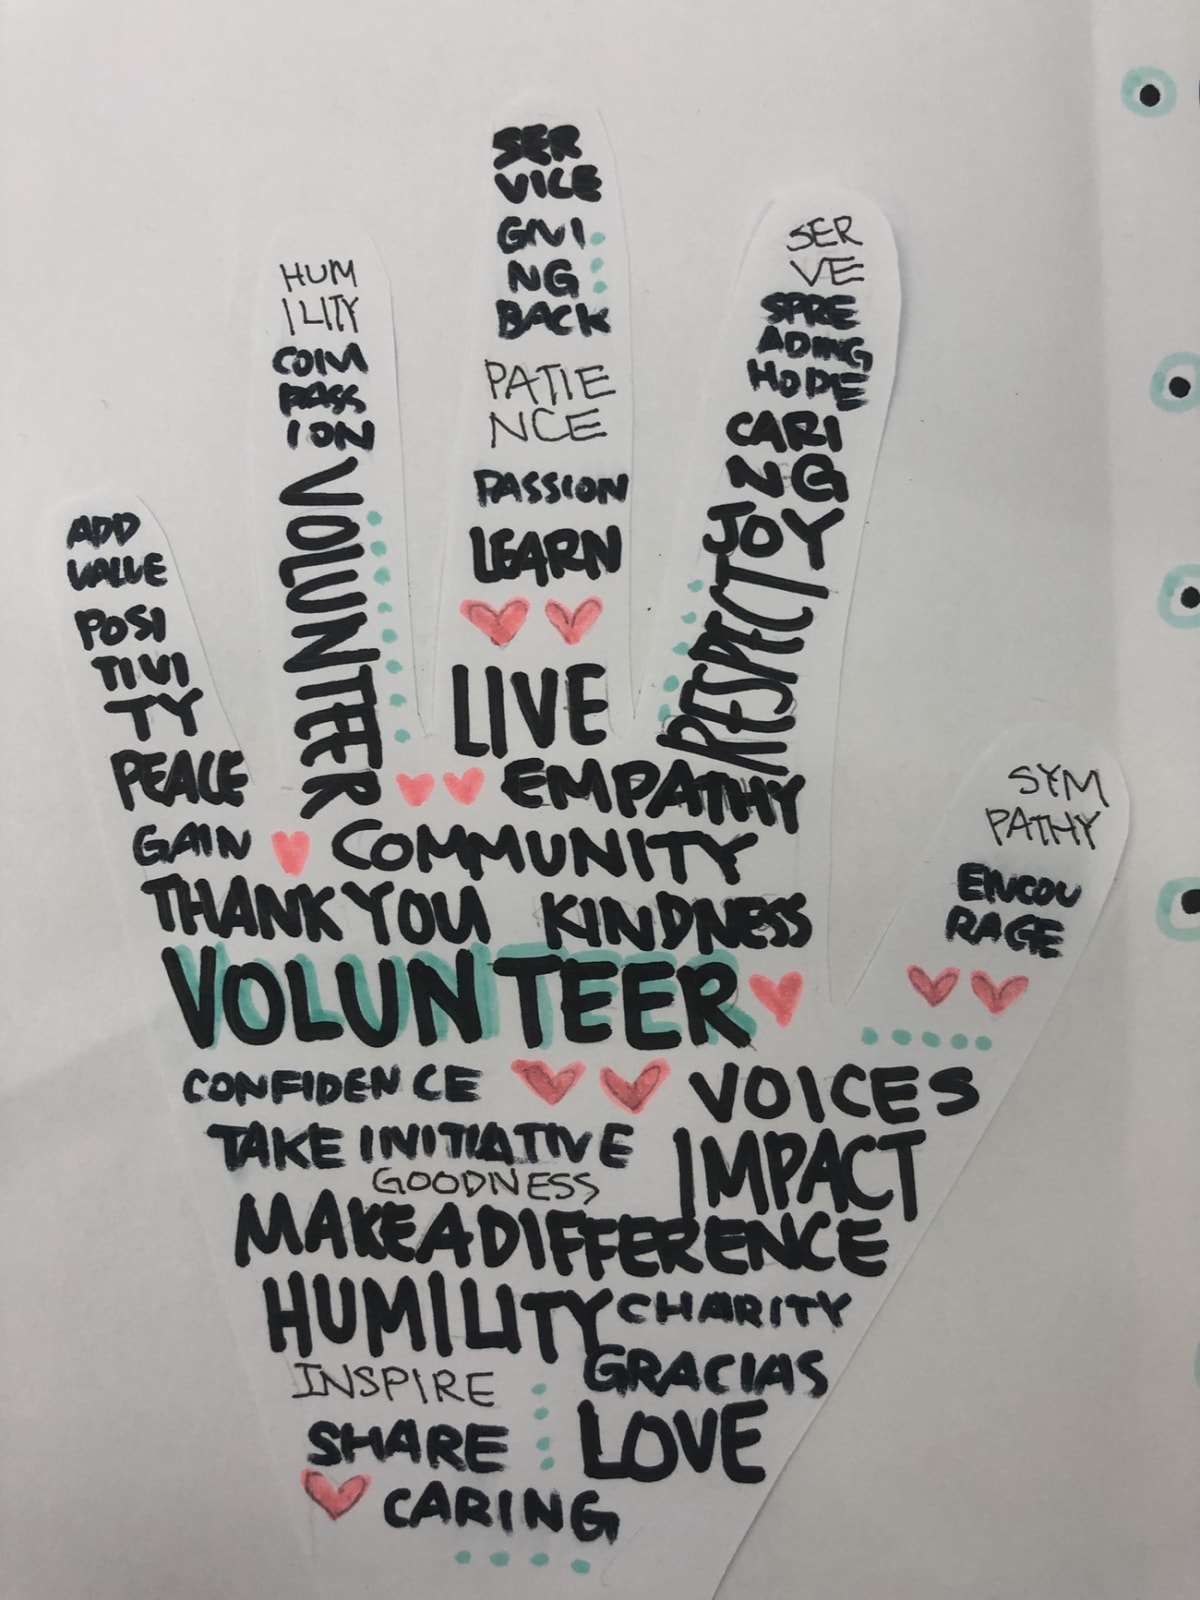 ADD
VALUE
POSI
TIVI
TY
PEACE
HUM
ILITY
COM
PASS
ION
VOLUNTEER
SER
VICE
GIVI
NG
BACK
PATIE
NCE
PASSION
LEARN
LIVE
SER
VE
SPRE
ADING
HOPE
CARI
NG
JOY
RESPECT
SYM
PATHY
ENCOU
RAGE
EMPATHY
GAIN COMMUNITY
THANK YOU KINDNESS
VOLUNTEER
CONFIDENCE VOICES
TAKE INITIATIVE IMPACT
GOODNESS
MAKE A DIFFERENCE
HUMILITY CHARITY
INSPIRE GRACIAS
SHARE LOVE
CARING